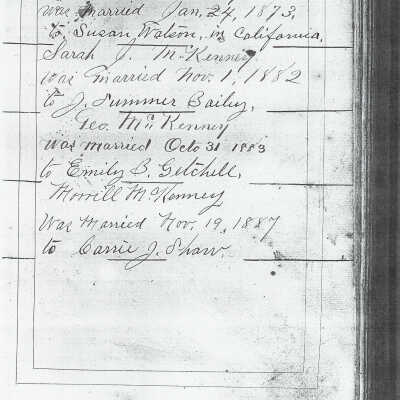 was married Jan. 24, 1873,
to Susan Watson, in California,
Sarah J. McKenney
was married Nov. 1, 1882
to J. Sumner Bailey,
Geo. Mc Kenney
was married Octo 31 1883
to Emily B. Getchell,
Morrill McKenney
Was married Nov. 19, 1887
to Carrie J. Shaw.